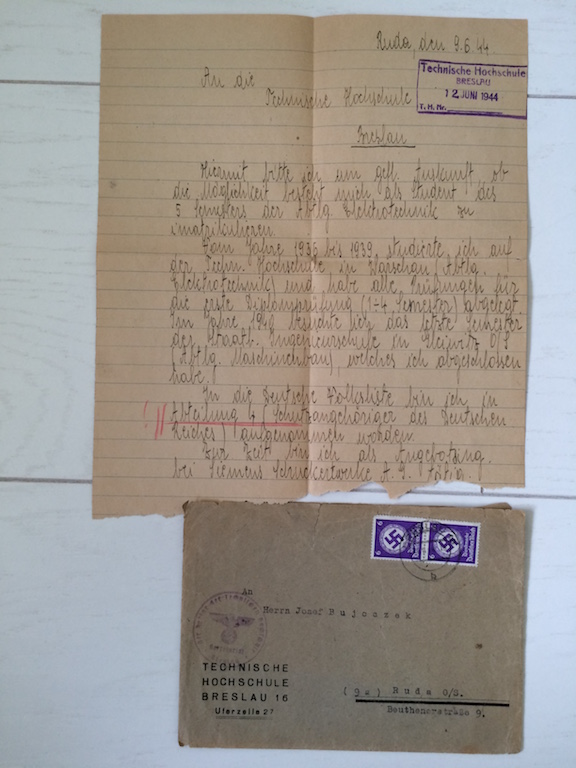 Ruda, den 9.6.44.
Technische Hochschule
BRESLAU
12. JUNI 1944
T. H. Nr.
An die
Technische Hochschule
Breslau
Hiermit bitte ich um gefl. Auskunft, ob
die Möglichkeit besteht mich als Student des
5 Semesters der Abtlg. Elektrotechnik zu
imatrikulieren.
Vom Jahre 1936 bis 1939 studierte ich auf
der Techn. Hochschule in Warschau (Abtlg.
Elektrotechnik) und habe alle Prüfungen für
die erste Diplomprüfung (1-4 Semester) abgelegt.
Im Jahre 1940 besuchte ich das letzte Semester
der Staatl. Ingenieurschule in Gleiwitz O/S
(Abtlg. Maschinenbau), welches ich abgeschlossen
habe.
In die Deutsche Volksliste bin ich in
Abteilung 4 (Schutzangehöriger des Deutschen
Reiches) aufgenommen worden.
Zur Zeit bin ich als
bei Siemens Schuckertwerke A. G. tätig.
6
6
b
An
Herrn Josef Bujoczek
TECHNISCHE
HOCHSCHULE
BRESLAU 16
Uferzeile 27
Ruda O/S.
Beuthenerstraße 9.